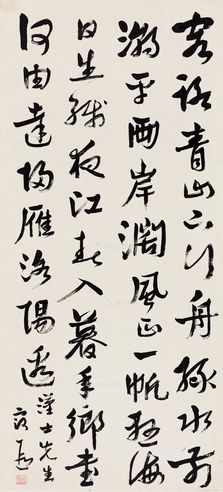 客路青山下行舟綠水前
潮平兩岸闊風正一帆懸海
日生殘夜江春入暮年鄉書
何由達歸雁洛陽邊 士先生